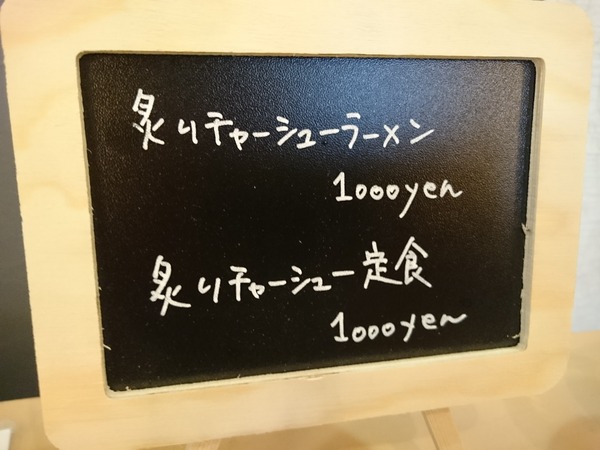 炙りチャーシューラーメン
1000yen
炙りチャーシュー定食
1000yen